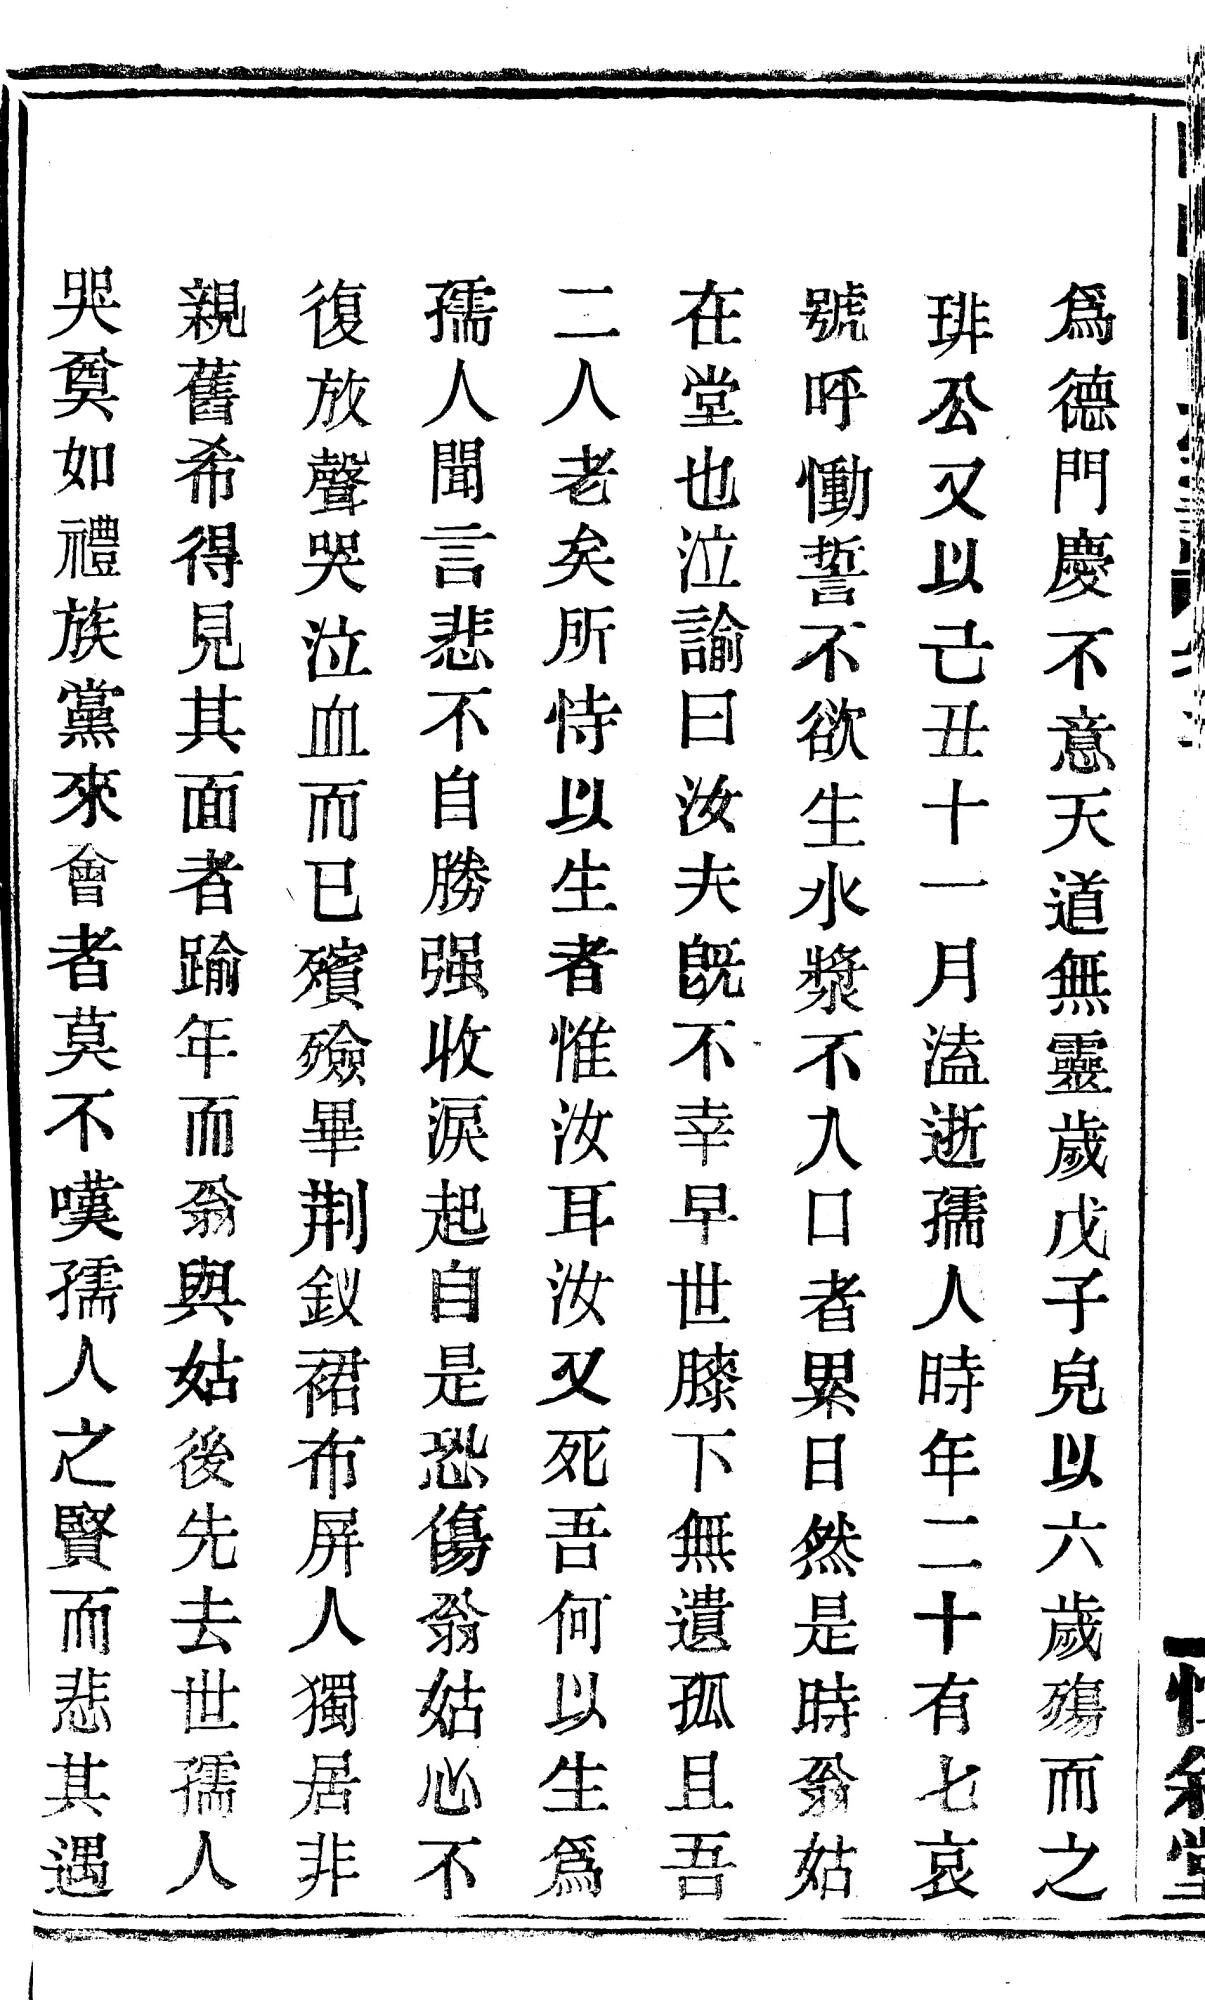 爲德門慶不意天道無靈歲戊子皃以六歲殤而之
琲公又以己丑十一月溘逝孺人時年二十有七哀
號呼慟誓不欲生水漿不入口者累日然是時翁姑
在堂也泣諭曰汝夫旣不幸早世膝下無遺孤且吾
二人老矣所恃以生者惟汝耳汝又死吾何以生爲
孺人聞言悲不自勝强收淚起自是恐傷翁姑心不
復放聲哭泣血而已殯殮畢荆釵裙布屏人獨居非
親舊希得見其面者踰年而翁與姑後先去世孺人
哭奠如禮族黨來會者莫不嘆孺人之賢而悲其遇